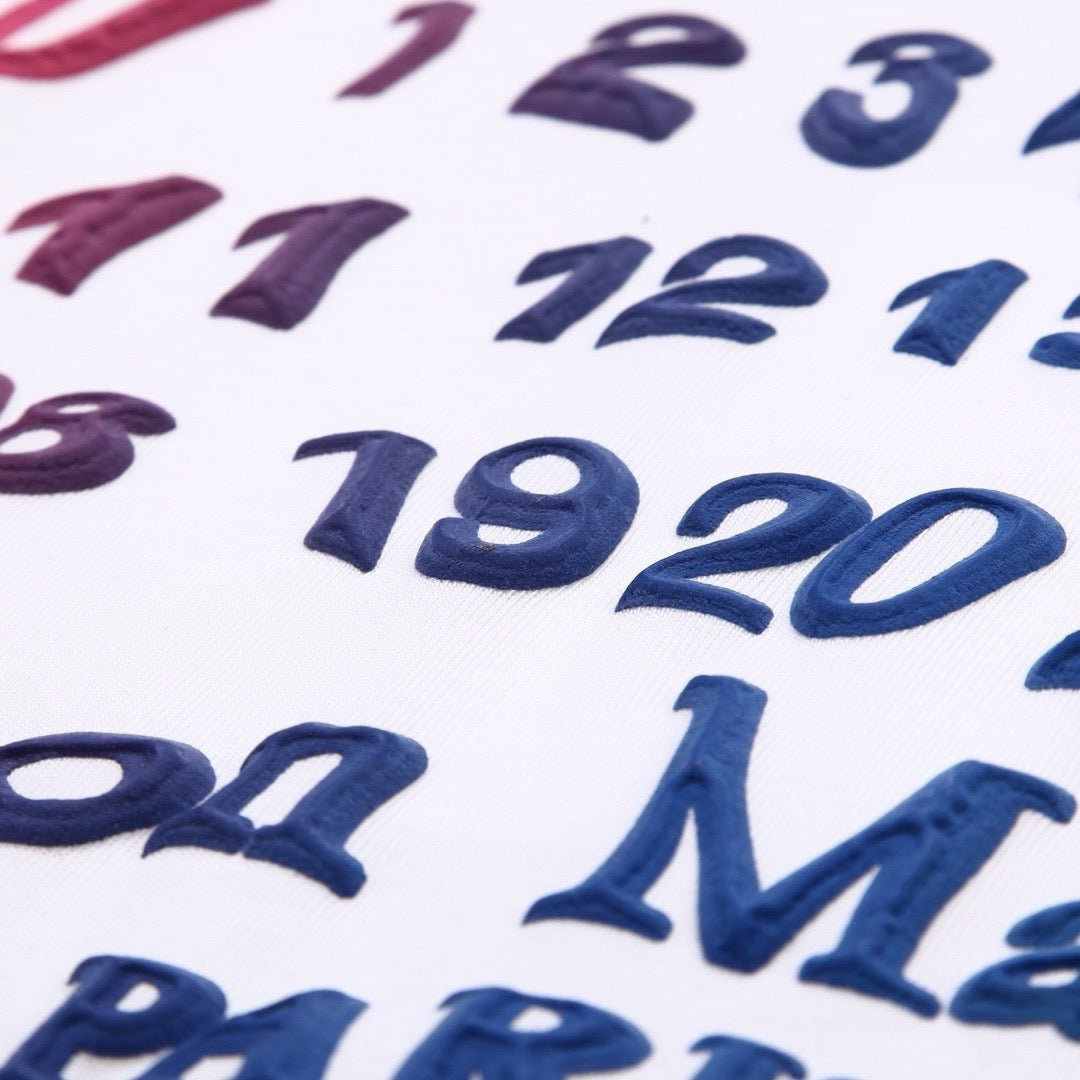 1 2 3
11 12 1
8 19 20
on Ma
PAR